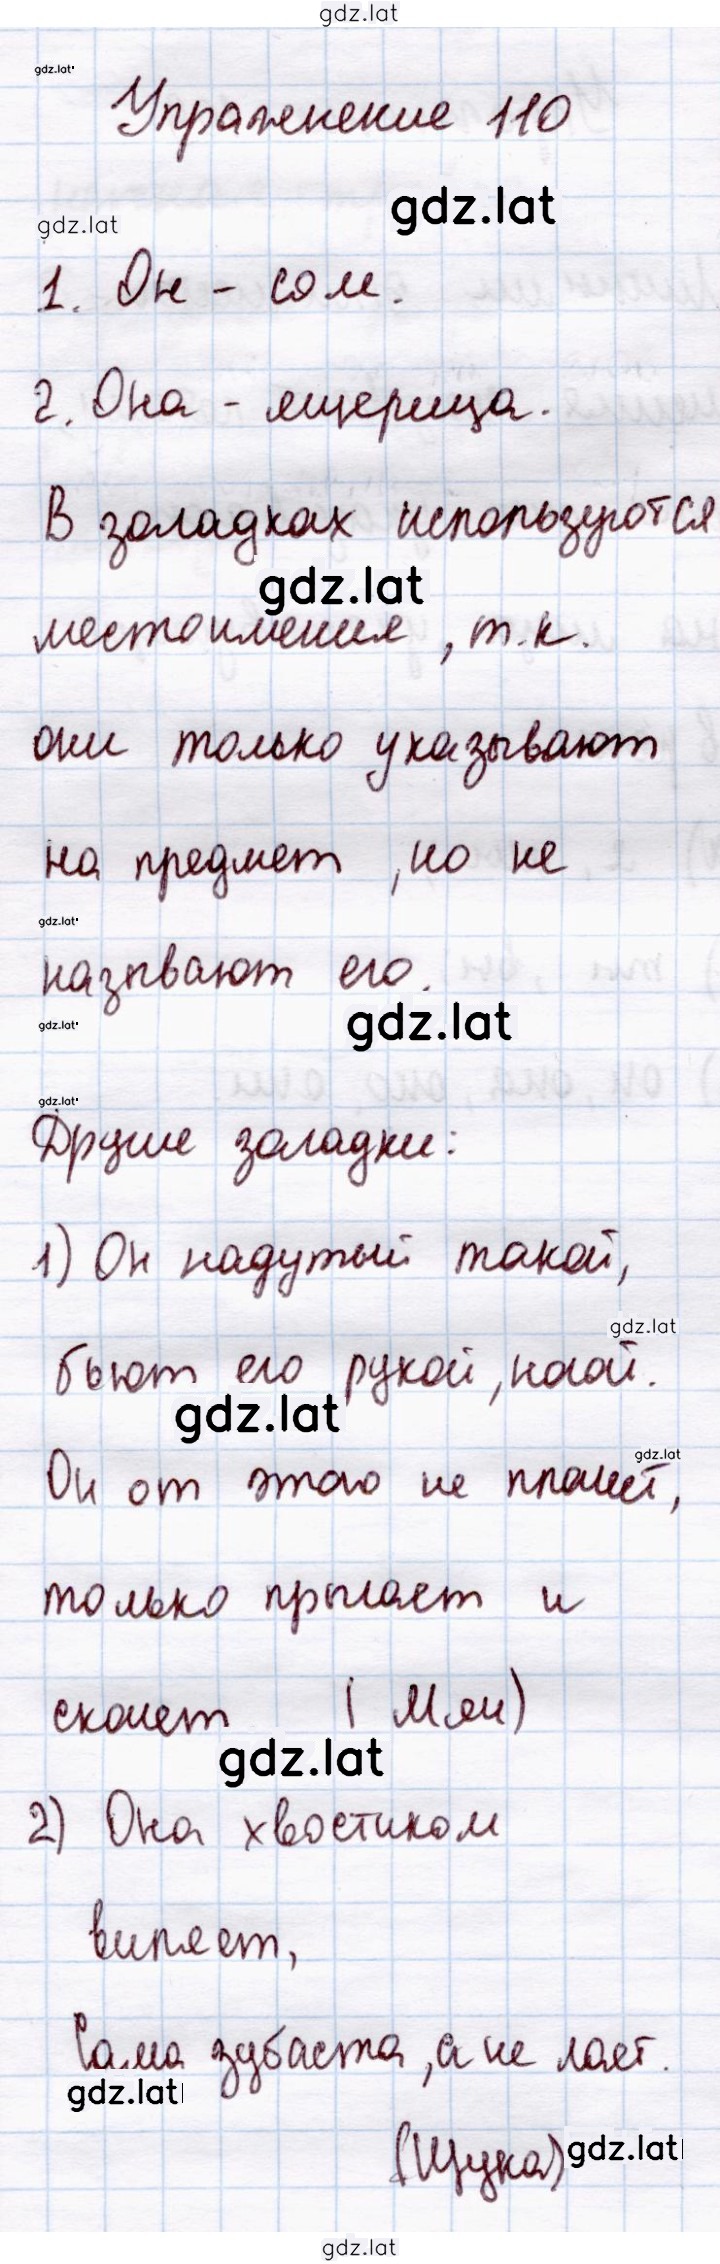 gdz.lat
gdz.lat
Упражнение 110
gdz.lat
gdz.lat
1. Он - сом.
2. Она - ящерица.
В загадках используются
gdz.lat
местоимения, т.к.
они только указывают
на предмет, но не
gdz.lat
называют его.
gdz.lat
gdz.lat
gdz.lat
Другие загадки:
1) Он надутый такой,
gdz.lat
бьют его рукой, ногой.
gdz.lat
gdz.lat
Он от этого не плачет,
только прыгает и
скачет (Мяч)
gdz.lat
2) Она хвостиком
виляет,
Сама зубаста, а не лает.
gdz.lat
(Щука)
gdz.lat
gdz.lat